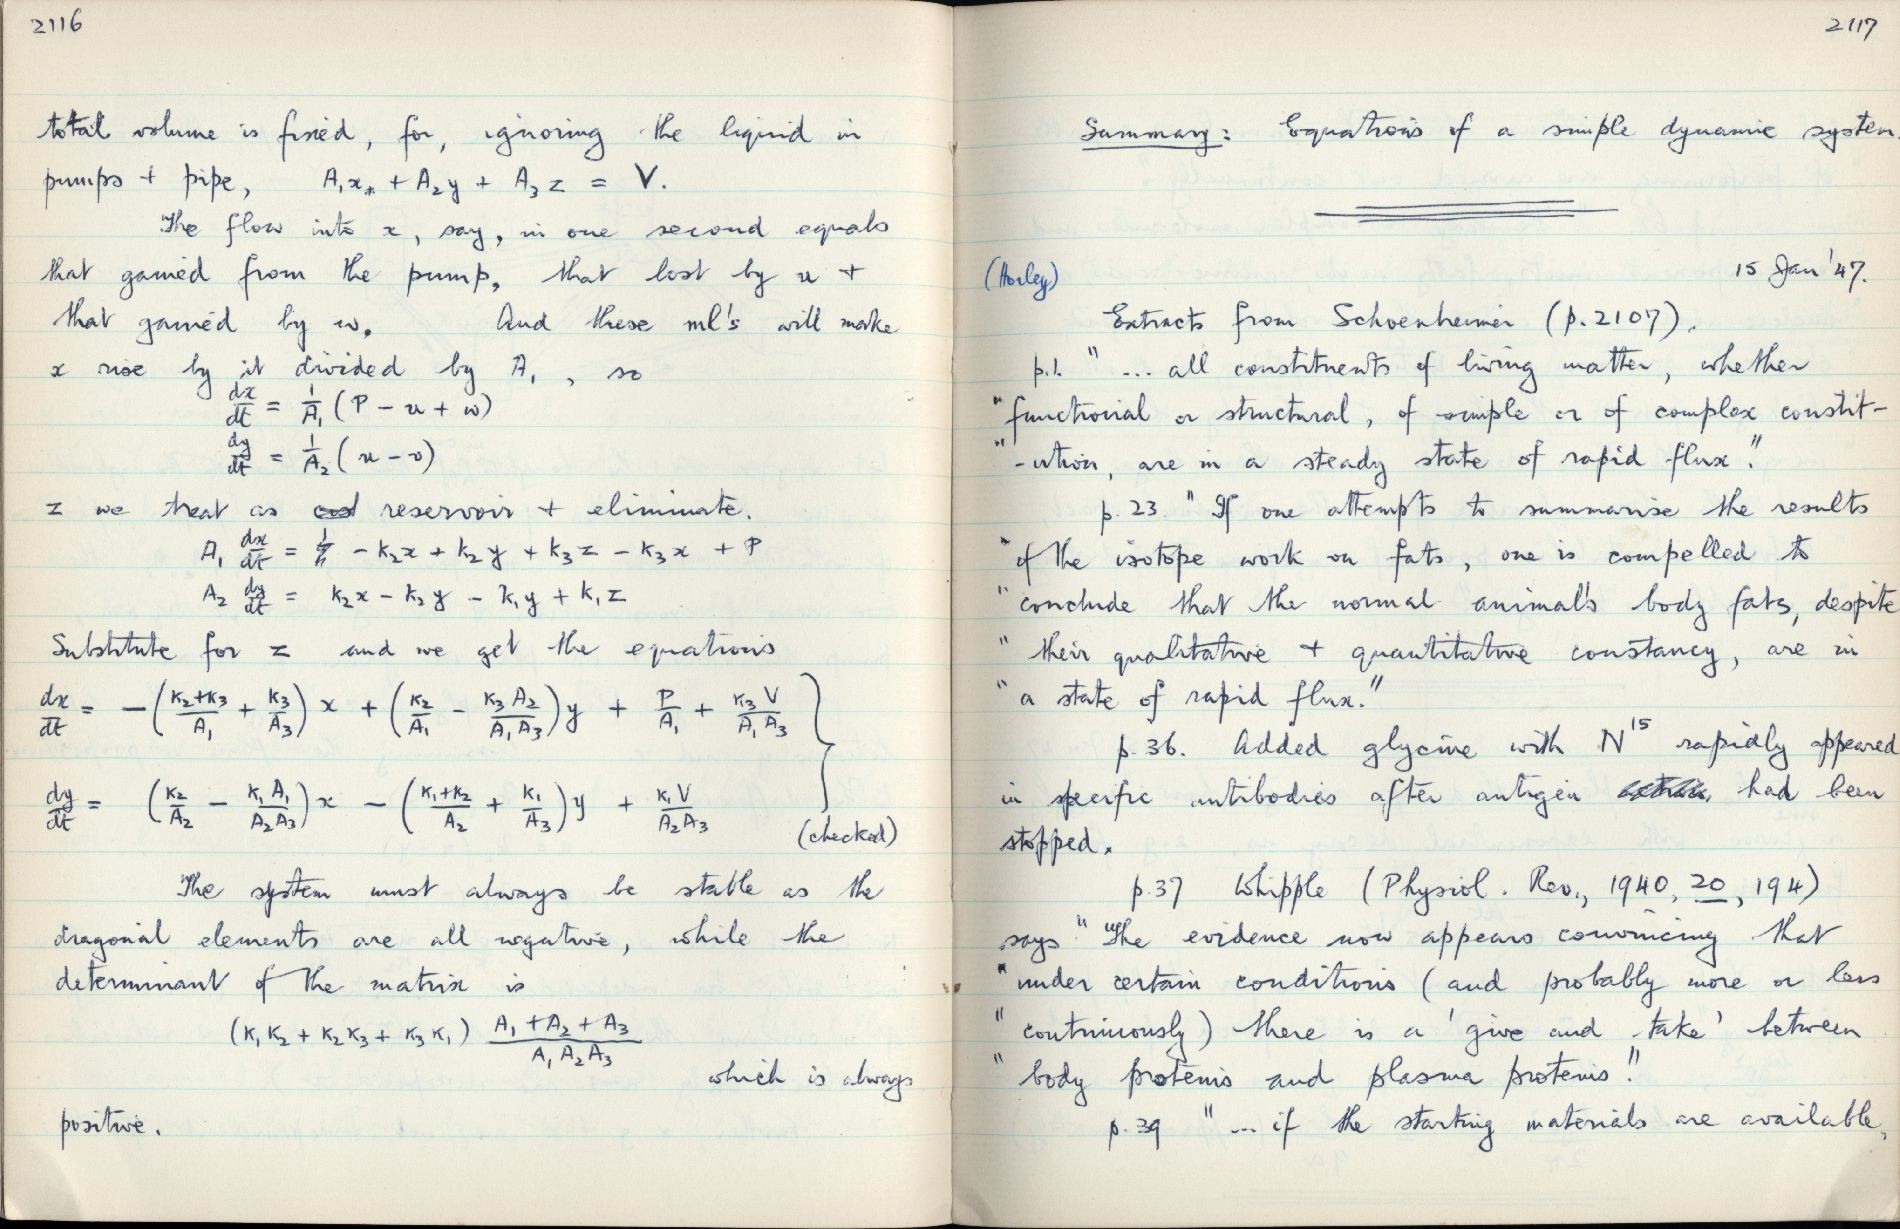 2116
total volume is fixed, for, ignoring the liquid in
pumps + pipe, A₁x + A₂y + A₃z = V.
The flow into x, say, in one second equals
that gained from the pump, that lost by u +
that gained by w. And these ml's will make
x rise by it divided by A₁, so
dx/dt = 1/A₁ (P − u + w)
dy/dt = 1/A₂ (u − v)
z we treat as reservoir + eliminate.
A₁ dx/dt = − k₂x + k₂y + k₃z − k₃x + P
A₂ dy/dt = k₂x − k₂y − k₁y + k₁z
Substitute for z and we get the equations
dx/dt = −((k₂+k₃)/A₁ + k₃/A₃) x + (k₂/A₁ − k₃A₂/A₁A₃) y + P/A₁ + k₃V/A₁A₃
dy/dt = (k₂/A₂ − k₁A₁/A₂A₃) x − ((k₁+k₂)/A₂ + k₁/A₃) y + k₁V/A₂A₃
(checked)
The system must always be stable as the
diagonal elements are all negative, while the
determinant of the matrix is
(k₁k₂ + k₂k₃ + k₃k₁) (A₁ + A₂ + A₃)/A₁A₂A₃
which is always
positive.
2117
Summary: Equations of a simple dynamic system.
(Horley) 15 Jan '47.
Extracts from Schoenheimer (p. 2107).
p.1. " ... all constituents of living matter, whether
"functional or structural, of simple or of complex constit-
"-ution, are in a steady state of rapid flux."
p. 23. "If one attempts to summarise the results
"of the isotope work on fats, one is compelled to
"conclude that the normal animal's body fats, despite
"their qualitative + quantitative constancy, are in
"a state of rapid flux."
p. 36. Added glycine with N¹⁵ rapidly appeared
in specific antibodies after antigen had been
stopped.
p. 37 Whipple (Physiol. Rev., 1940, 20, 194)
says "The evidence now appears convincing that
"under certain conditions (and probably more or less
"continuously) there is a 'give and take' between
"body proteins and plasma proteins."
p. 39 "... if the starting materials are available,